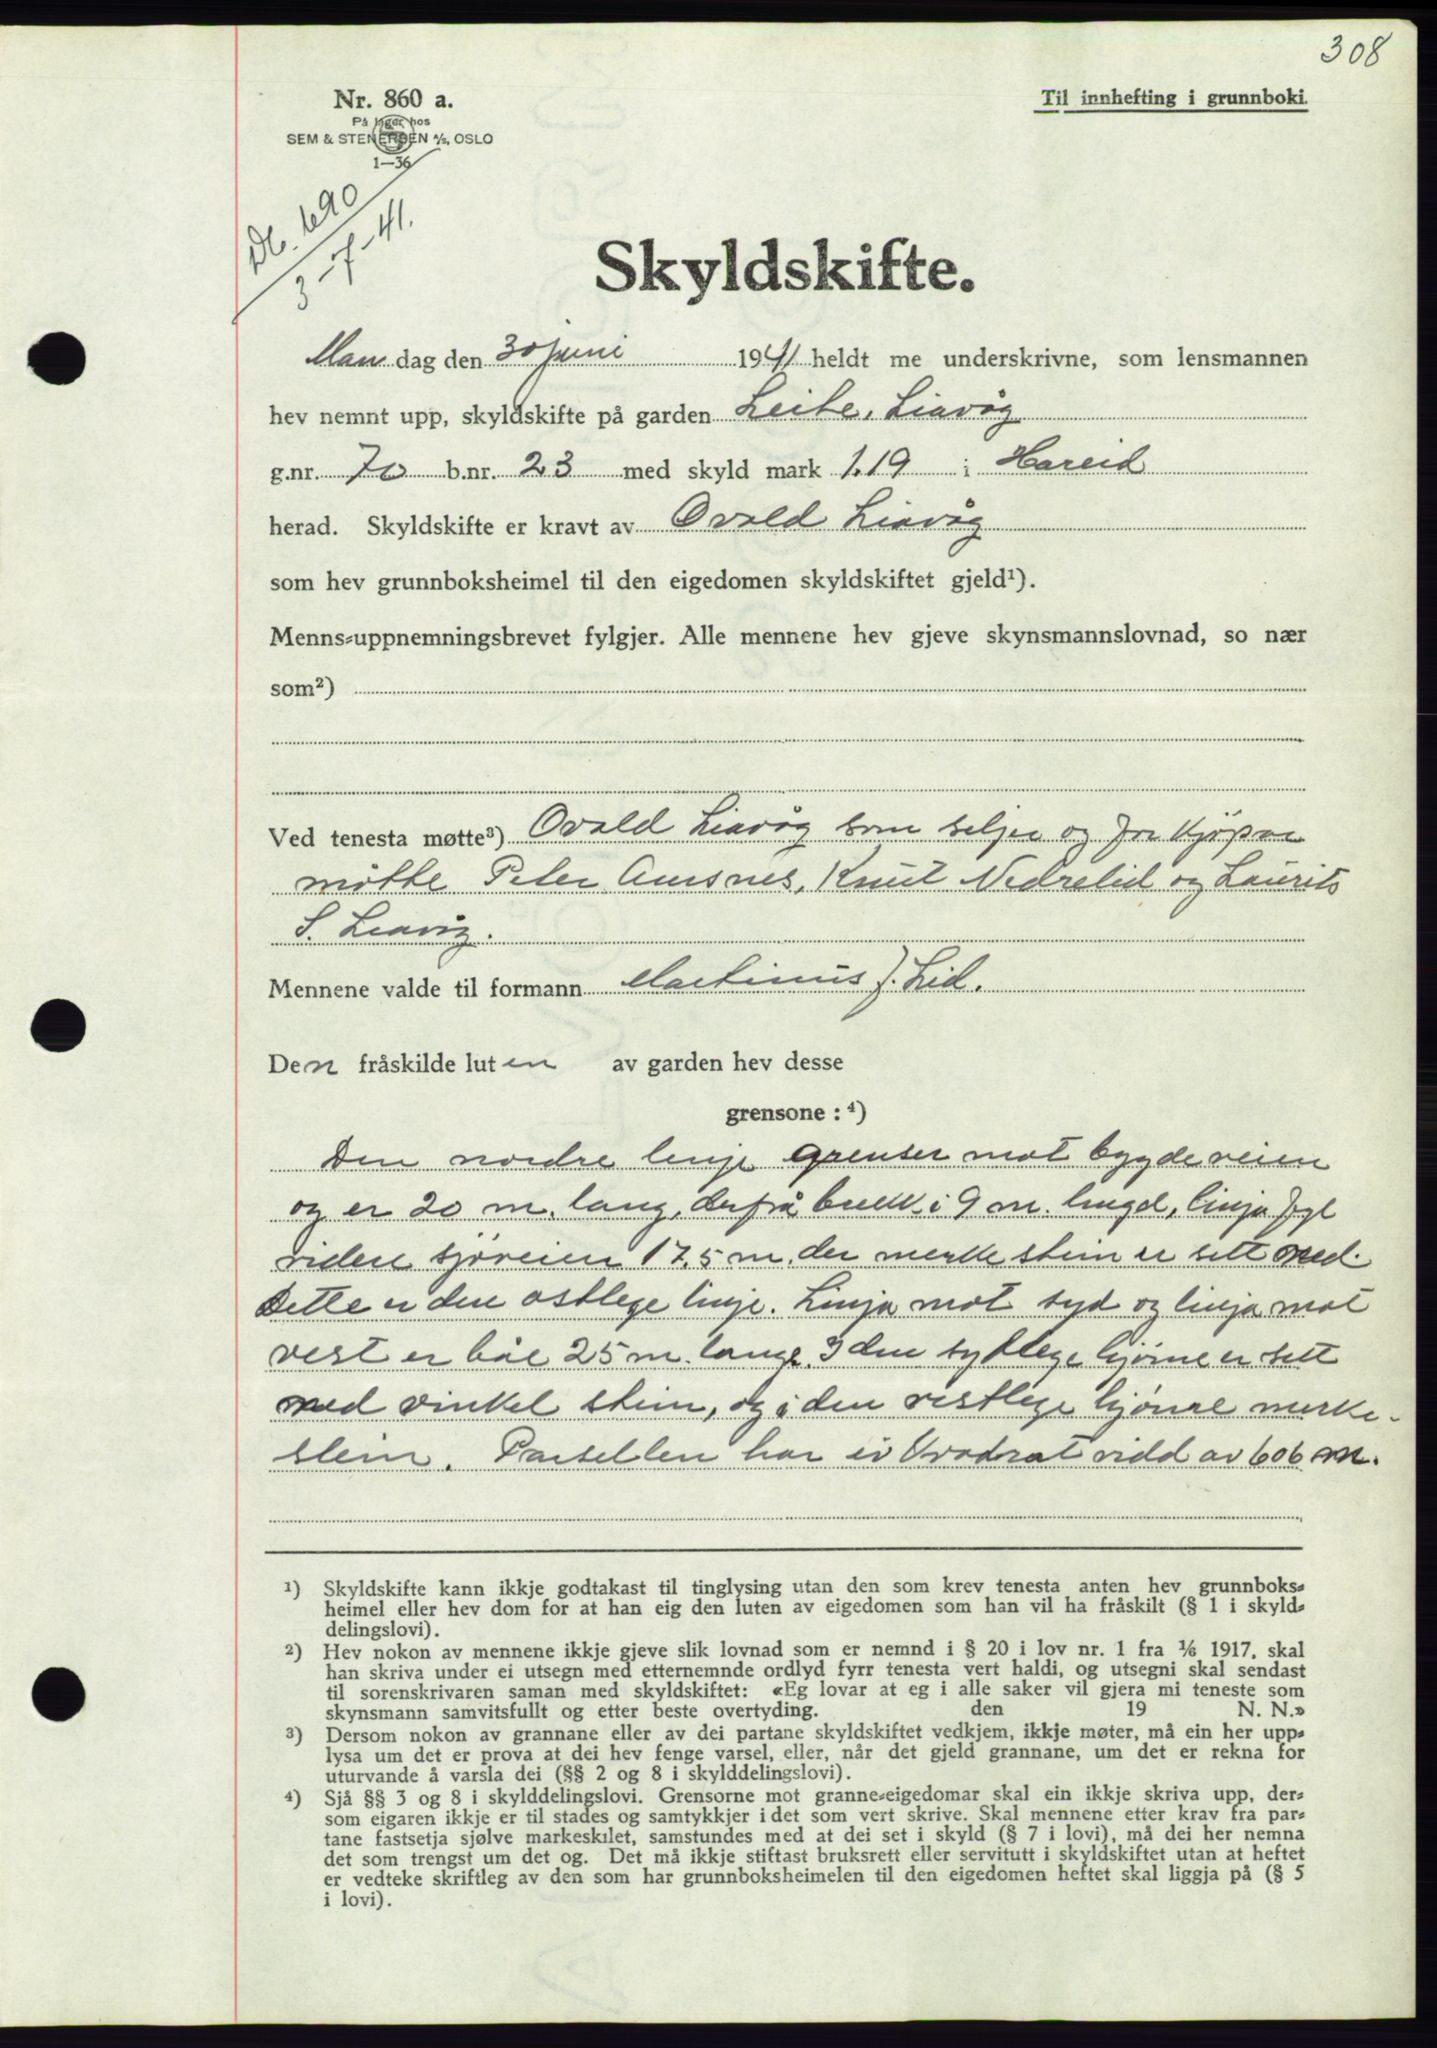 308
Nr. 860 a.
Til innhefting i grunnboki.
På lager hos
SEM & STENERSEN A/S, OSLO
1—36
Db. 690
3-7-41.
Skyldskifte.
Mandag den 30 juni 1941 heldt me underskrivne, som lensmannen
hev nemnt upp, skyldskifte på garden Leite, Liavåg
g.nr. 70 b.nr. 23 med skyld mark 1.19 i Hareid
herad. Skyldskifte er kravt av Ovald Liavåg
som hev grunnboksheimel til den eigedomen skyldskiftet gjeld¹).
Menns-uppnemningsbrevet fylgjer. Alle mennene hev gjeve skynsmannslovnad, so nær
som²)
Ved tenesta møtte³) Ovald Liavåg som seljer og for kjøpar
møtte Peter Aursnes, Knut Nedrelid og Laurits
S. Liavåg.
Mennene valde til formann Martinus J. Lid.
Den fråskilde luten av garden hev desse
grensone : ⁴)
Den nordre linje grenser mot bygdeveien
og er 20 m. lang, derfrå brekk i 9 m. lengd, linja fyl
videre sjøveien 17,5 m. der merkestein er sett ned.
Dette er den østlege linje. Linja mot syd og linja mot
vest er båe 25 m. lange. I den sydlege hjørne er sett
ned vinkel stein, og i den vestlege hjørne merke-
stein. Parsellen har ei kvadrat vidd av 606 m.
¹) Skyldskifte kann ikkje godtakast til tinglysing utan den som krev tenesta anten hev grunnboks-
heimel eller hev dom for at han eig den luten av eigedomen som han vil ha fråskilt (§ 1 i skyld-
delingslovi).
²) Hev nokon av mennene ikkje gjeve slik lovnad som er nemnd i § 20 i lov nr. 1 fra 1/6 1917, skal
han skriva under ei utsegn med etternemnde ordlyd fyrr tenesta vert haldi, og utsegni skal sendast
til sorenskrivaren saman med skyldskiftet: «Eg lovar at eg i alle saker vil gjera mi teneste som
skynsmann samvitsfullt og etter beste overtyding. den 19 N. N.»
³) Dersom nokon av grannane eller av dei partane skyldskiftet vedkjem, ikkje møter, må ein her upp-
lysa um det er prova at dei hev fenge varsel, eller, når det gjeld grannane, um det er rekna for
uturvande å varsla dei (§§ 2 og 8 i skylddelingslovi).
⁴) Sjå §§ 3 og 8 i skylddelingslovi. Grensorne mot granne-eigedomar skal ein ikkje skriva upp, der-
som eigaren ikkje er til stades og samtykkjer i det som vert skrive. Skal mennene etter krav fra par-
tane fastsetja sjølve markeskilet, samstundes med at dei set i skyld (§ 7 i lovi), må dei her nemna
det som trengst um det og. Det må ikkje stiftast bruksrett eller servitutt i skyldskiftet utan at heftet
er vedteke skriftleg av den som har grunnboksheimelen til den eigedomen heftet skal liggja på (§ 5
i lovi).